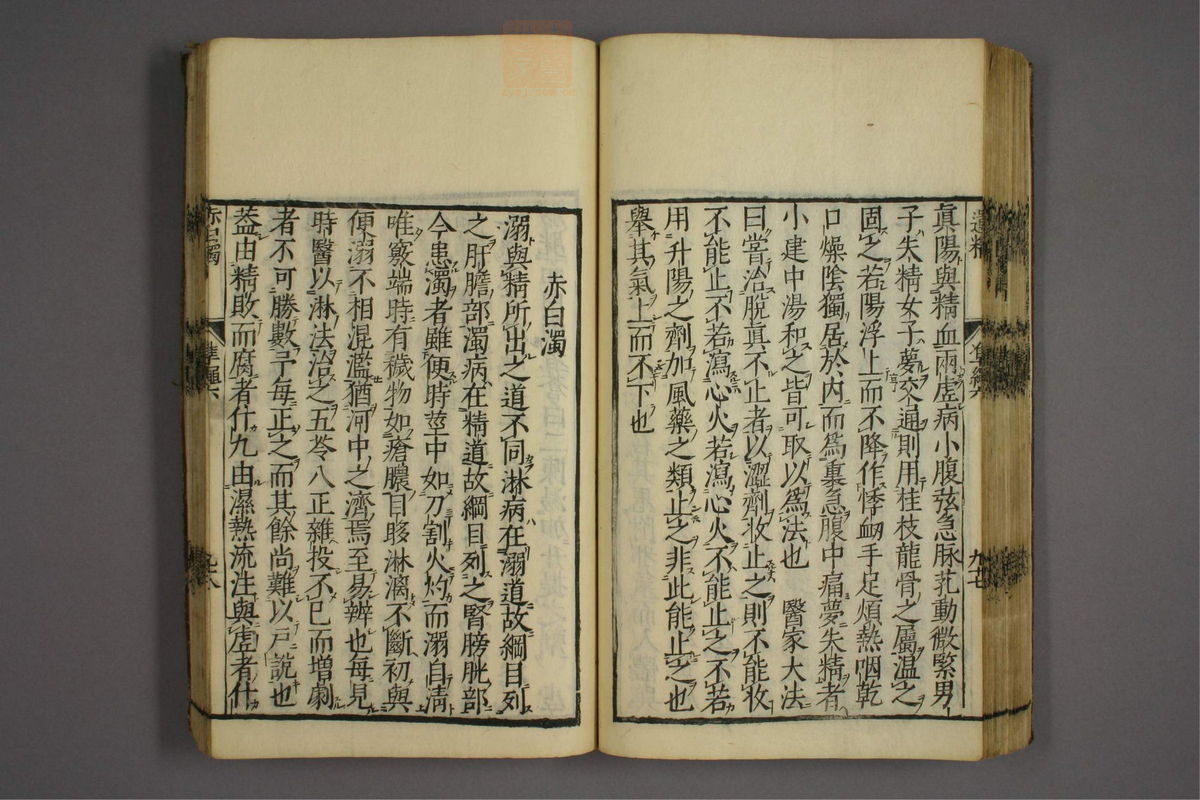 遺精
準繩六
九七
眞陽與精血兩虛病小腹弦急脉芤動微緊男
子失精女子夢交通則用桂枝龍骨之屬温之
固之若陽浮上而不降作悸衂手足煩熱咽乾
口燥陰獨居於內而爲裏急腹中痛夢失精者
小建中湯和之皆可取以爲法也 醫家大法
曰嘗治脫眞不止者以澀劑收止之則不能收
不能止不若瀉心火若瀉心火不能止之不若
用升陽之劑加風藥之類止之非此能止之也
舉其氣上而不下也
赤白濁
溺與精所出之道不同淋病在溺道故綱目列
之肝膽部濁病在精道故綱目列之腎膀胱部
今患濁者雖便時莖中如刀割火灼而溺自淸
唯竅端時有穢物如瘡膿目眵淋漓不斷初與
便溺不相混濫猶河中之濟焉至易辨也毎見
時醫以淋法治之五苓八正雜投不已而增劇
者不可勝數予毎正之而其餘尚難以戶說也
葢由精敗而腐者什九由濕熱流注與虛者什
赤白濁
準繩六
九八